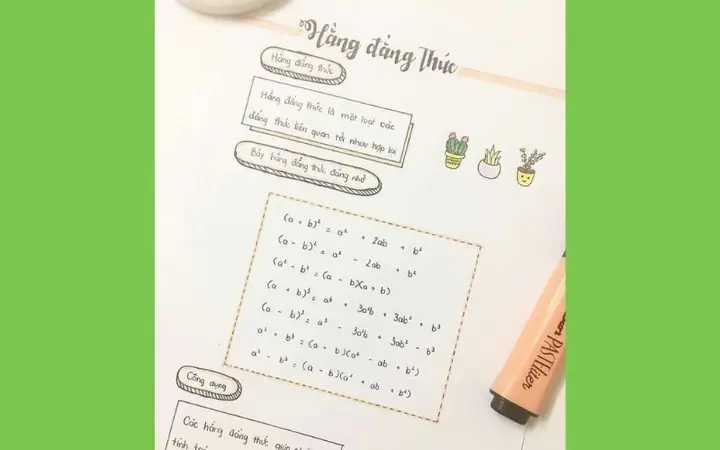 Hằng đẳng thức
Hằng đẳng thức
Hằng đẳng thức là một loạt các
đẳng thức liên quan tới nhau hợp lại
Bảy hằng đẳng thức đáng nhớ
(a + b)² = a² + 2ab + b²
(a - b)² = a² - 2ab + b²
(a² - b² = (a - b)(a + b)
(a + b)³ = a³ + 3a²b + 3ab² + b³
(a - b)³ = a³ - 3a²b + 3ab² - b³
a³ + b³ = (a - b)(a² - ab + b²)
a³ - b³ = (a - b)(a² + ab + b²)
Công dụng
Các hằng đẳng thức giúp
tính
PASTELliner